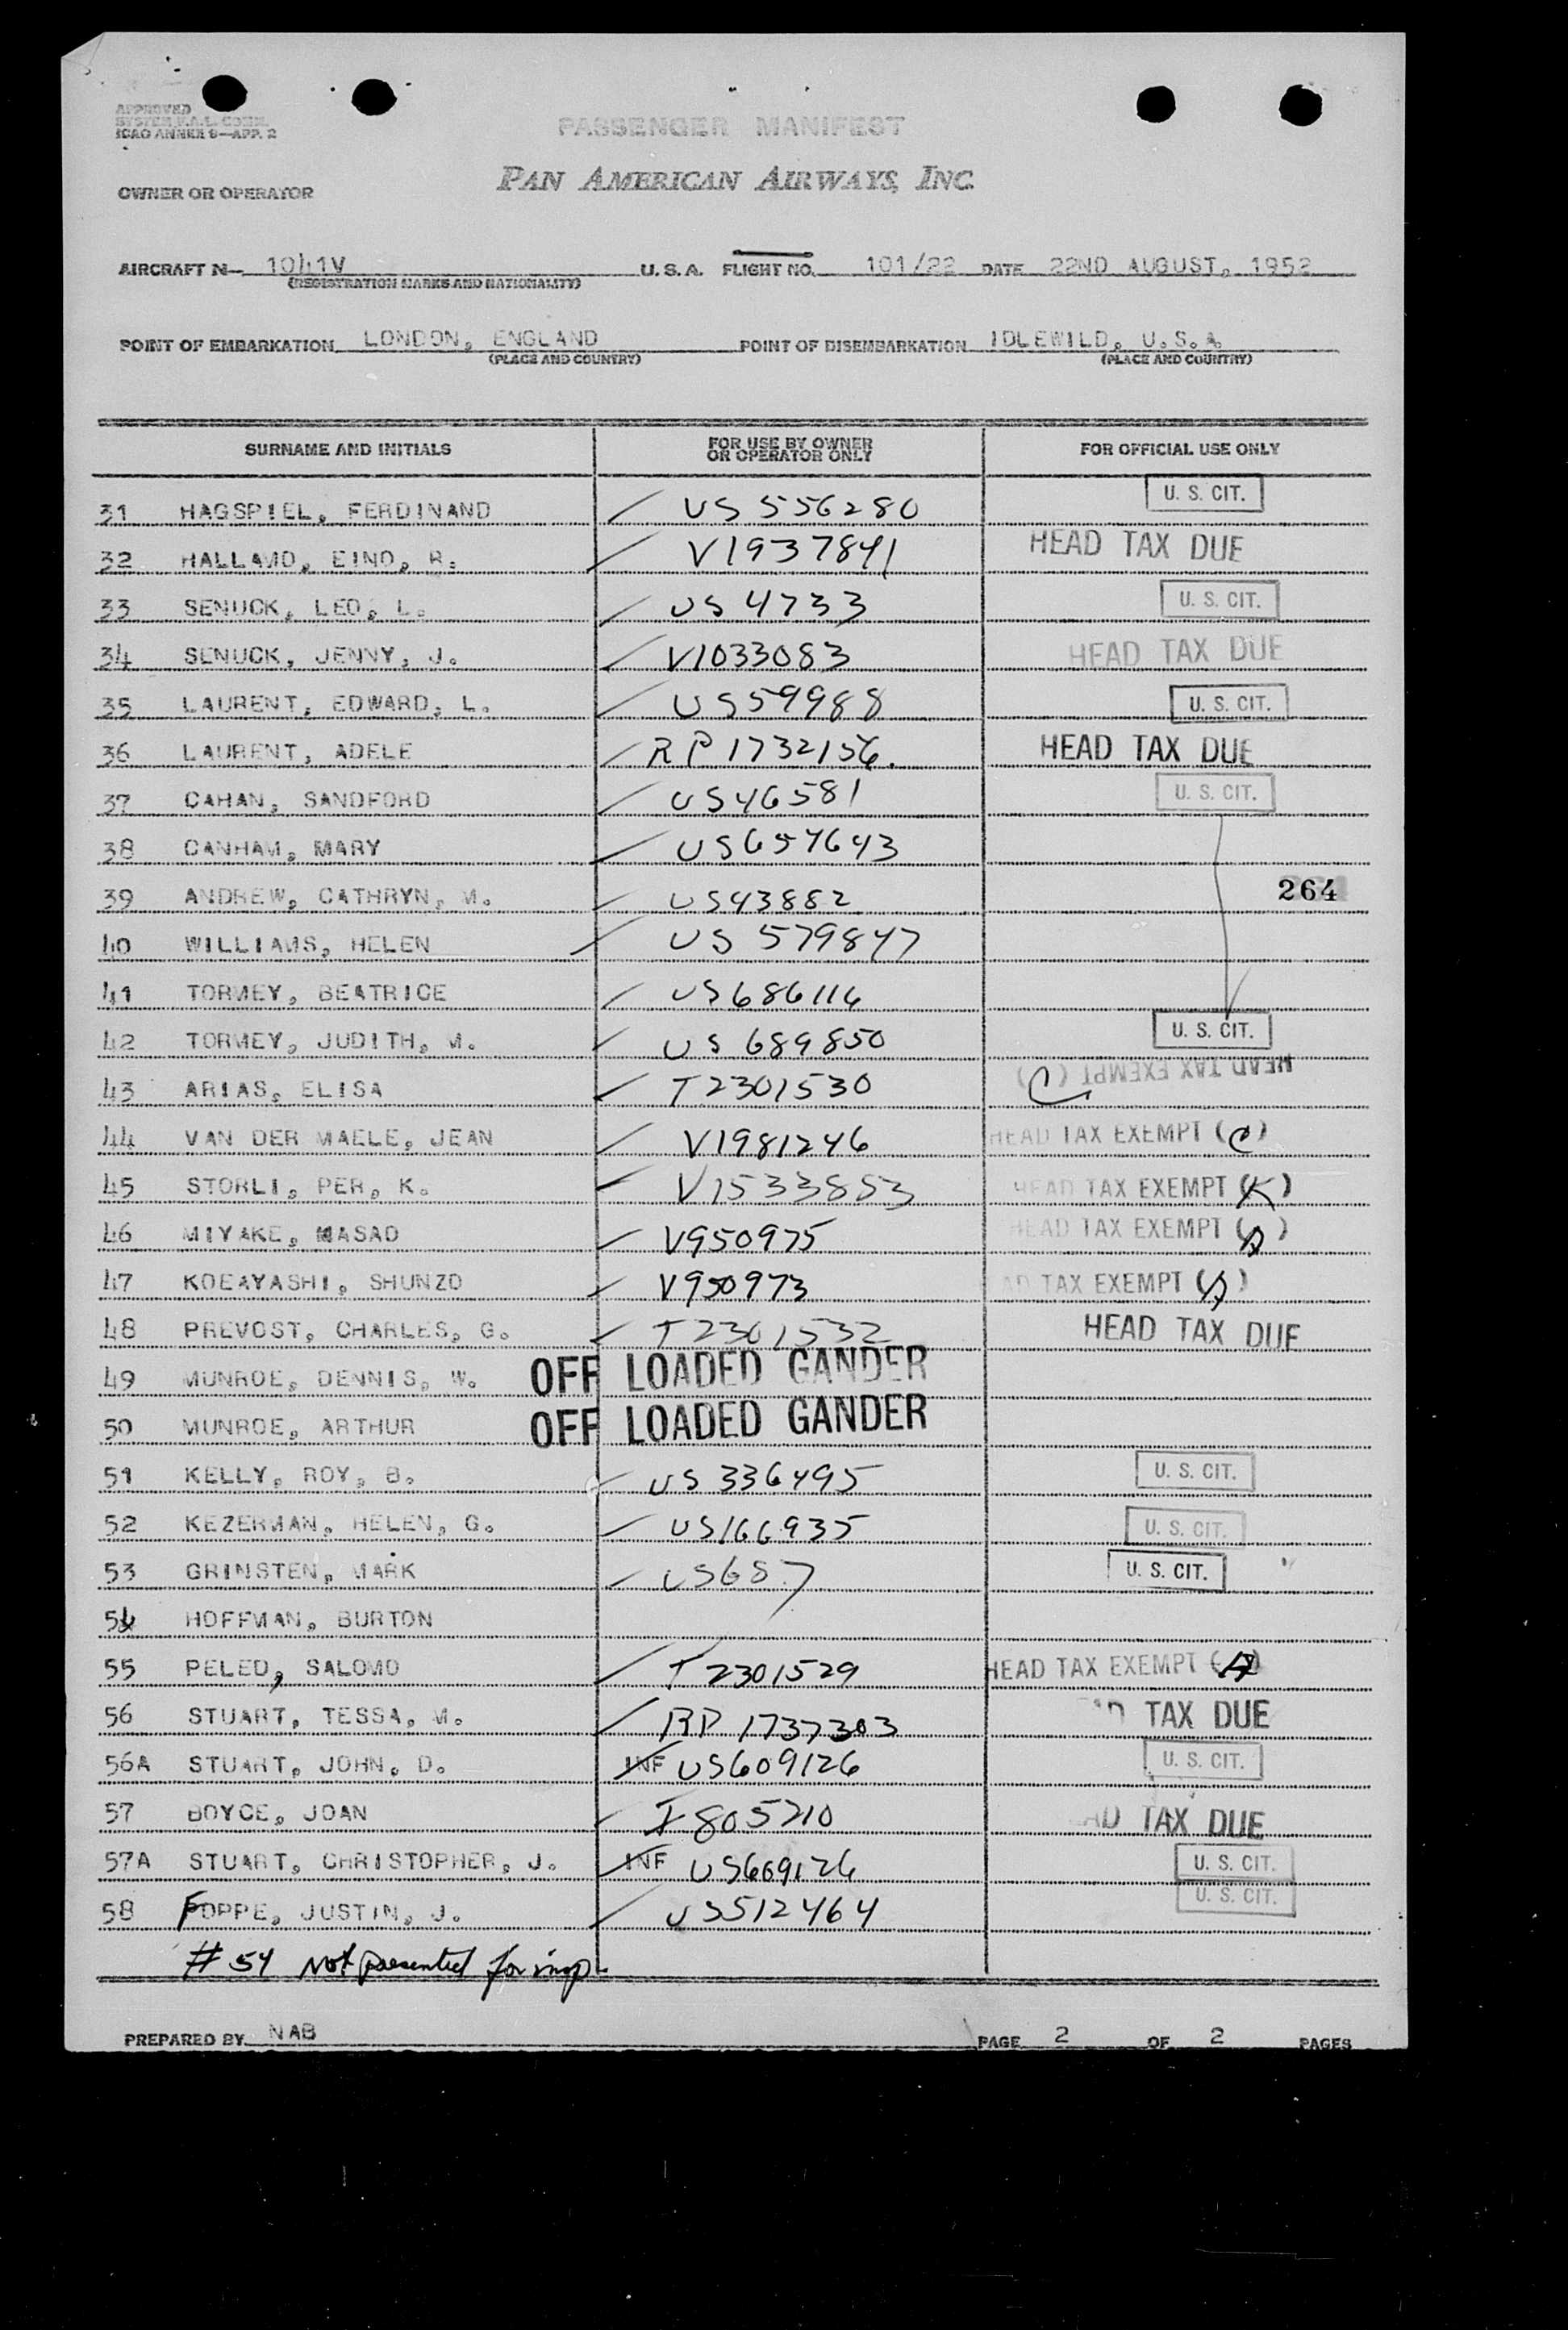 APPROVED
SYSTEM F.A.L. COMM.
ICAO ANNEX 9—APP. 2
PASSENGER MANIFEST
PAN AMERICAN AIRWAYS, INC.
OWNER OR OPERATOR
AIRCRAFT N— 1041V U. S. A. FLIGHT NO. 101/22 DATE 22ND AUGUST, 1952
(REGISTRATION MARKS AND NATIONALITY)
POINT OF EMBARKATION LONDON, ENGLAND POINT OF DISEMBARKATION IDLEWILD, U.S.A.
(PLACE AND COUNTRY) (PLACE AND COUNTRY)
SURNAME AND INITIALS FOR USE BY OWNER OR OPERATOR ONLY FOR OFFICIAL USE ONLY
31 HAGSPIEL, FERDINAND US 556280 U. S. CIT.
32 HALLAMO, EINO, R. V1937841 HEAD TAX DUE
33 SENUCK, LEO, L. US 4733 U. S. CIT.
34 SENUCK, JENNY, J. V1033083 HEAD TAX DUE
35 LAURENT, EDWARD, L. US59988 U. S. CIT.
36 LAURENT, ADELE RP 1732156. HEAD TAX DUE
37 CAHAN, SANDFORD US46581 U. S. CIT.
38 CANHAM, MARY US657643
39 ANDREW, CATHRYN, M. US43882 264
40 WILLIAMS, HELEN US 579847
41 TORMEY, BEATRICE US686116
42 TORMEY, JUDITH, M. US 689850 U. S. CIT.
43 ARIAS, ELISA T2301530 HEAD TAX EXEMPT (C)
44 VAN DER MAELE, JEAN V1981246 HEAD TAX EXEMPT (C)
45 STORLI, PER, K. V1533853 HEAD TAX EXEMPT (K)
46 MIYAKE, MASAO V950975 HEAD TAX EXEMPT (A)
47 KOEAYASHI, SHUNZO V950973 AD TAX EXEMPT (A)
48 PREVOST, CHARLES, G. T2301532 HEAD TAX DUE
49 MUNROE, DENNIS, W. OFF LOADED GANDER
50 MUNROE, ARTHUR OFF LOADED GANDER
51 KELLY, ROY, B. US 336495 U. S. CIT.
52 KEZERMAN, HELEN, G. US166935 U. S. CIT.
53 GRINSTEN, MARK US687 U. S. CIT.
54 HOFFMAN, BURTON
55 PELED, SALOMO T2301529 HEAD TAX EXEMPT (A)
56 STUART, TESSA, M. RP 1737303 TAX DUE
56A STUART, JOHN, D. INF US609126 U. S. CIT.
57 BOYCE, JOAN I 805210 AD TAX DUE
57A STUART, CHRISTOPHER, J. INF US609126 U. S. CIT.
58 FOPPE, JUSTIN, J. US512464 U. S. CIT.
# 54 Not presented for insp
PREPARED BY NAB PAGE 2 OF 2 PAGES